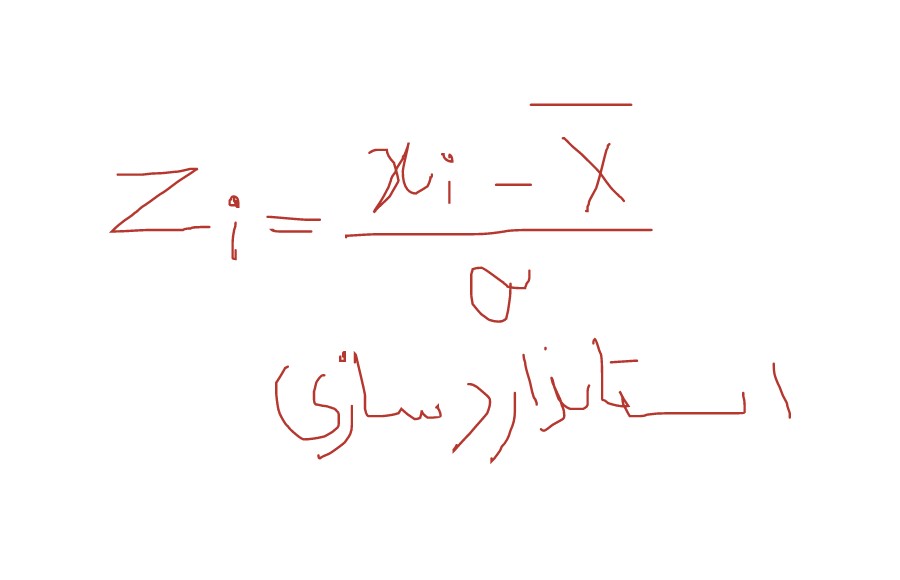 Zi = (xi − X̄) / σ
استاندارد سازی